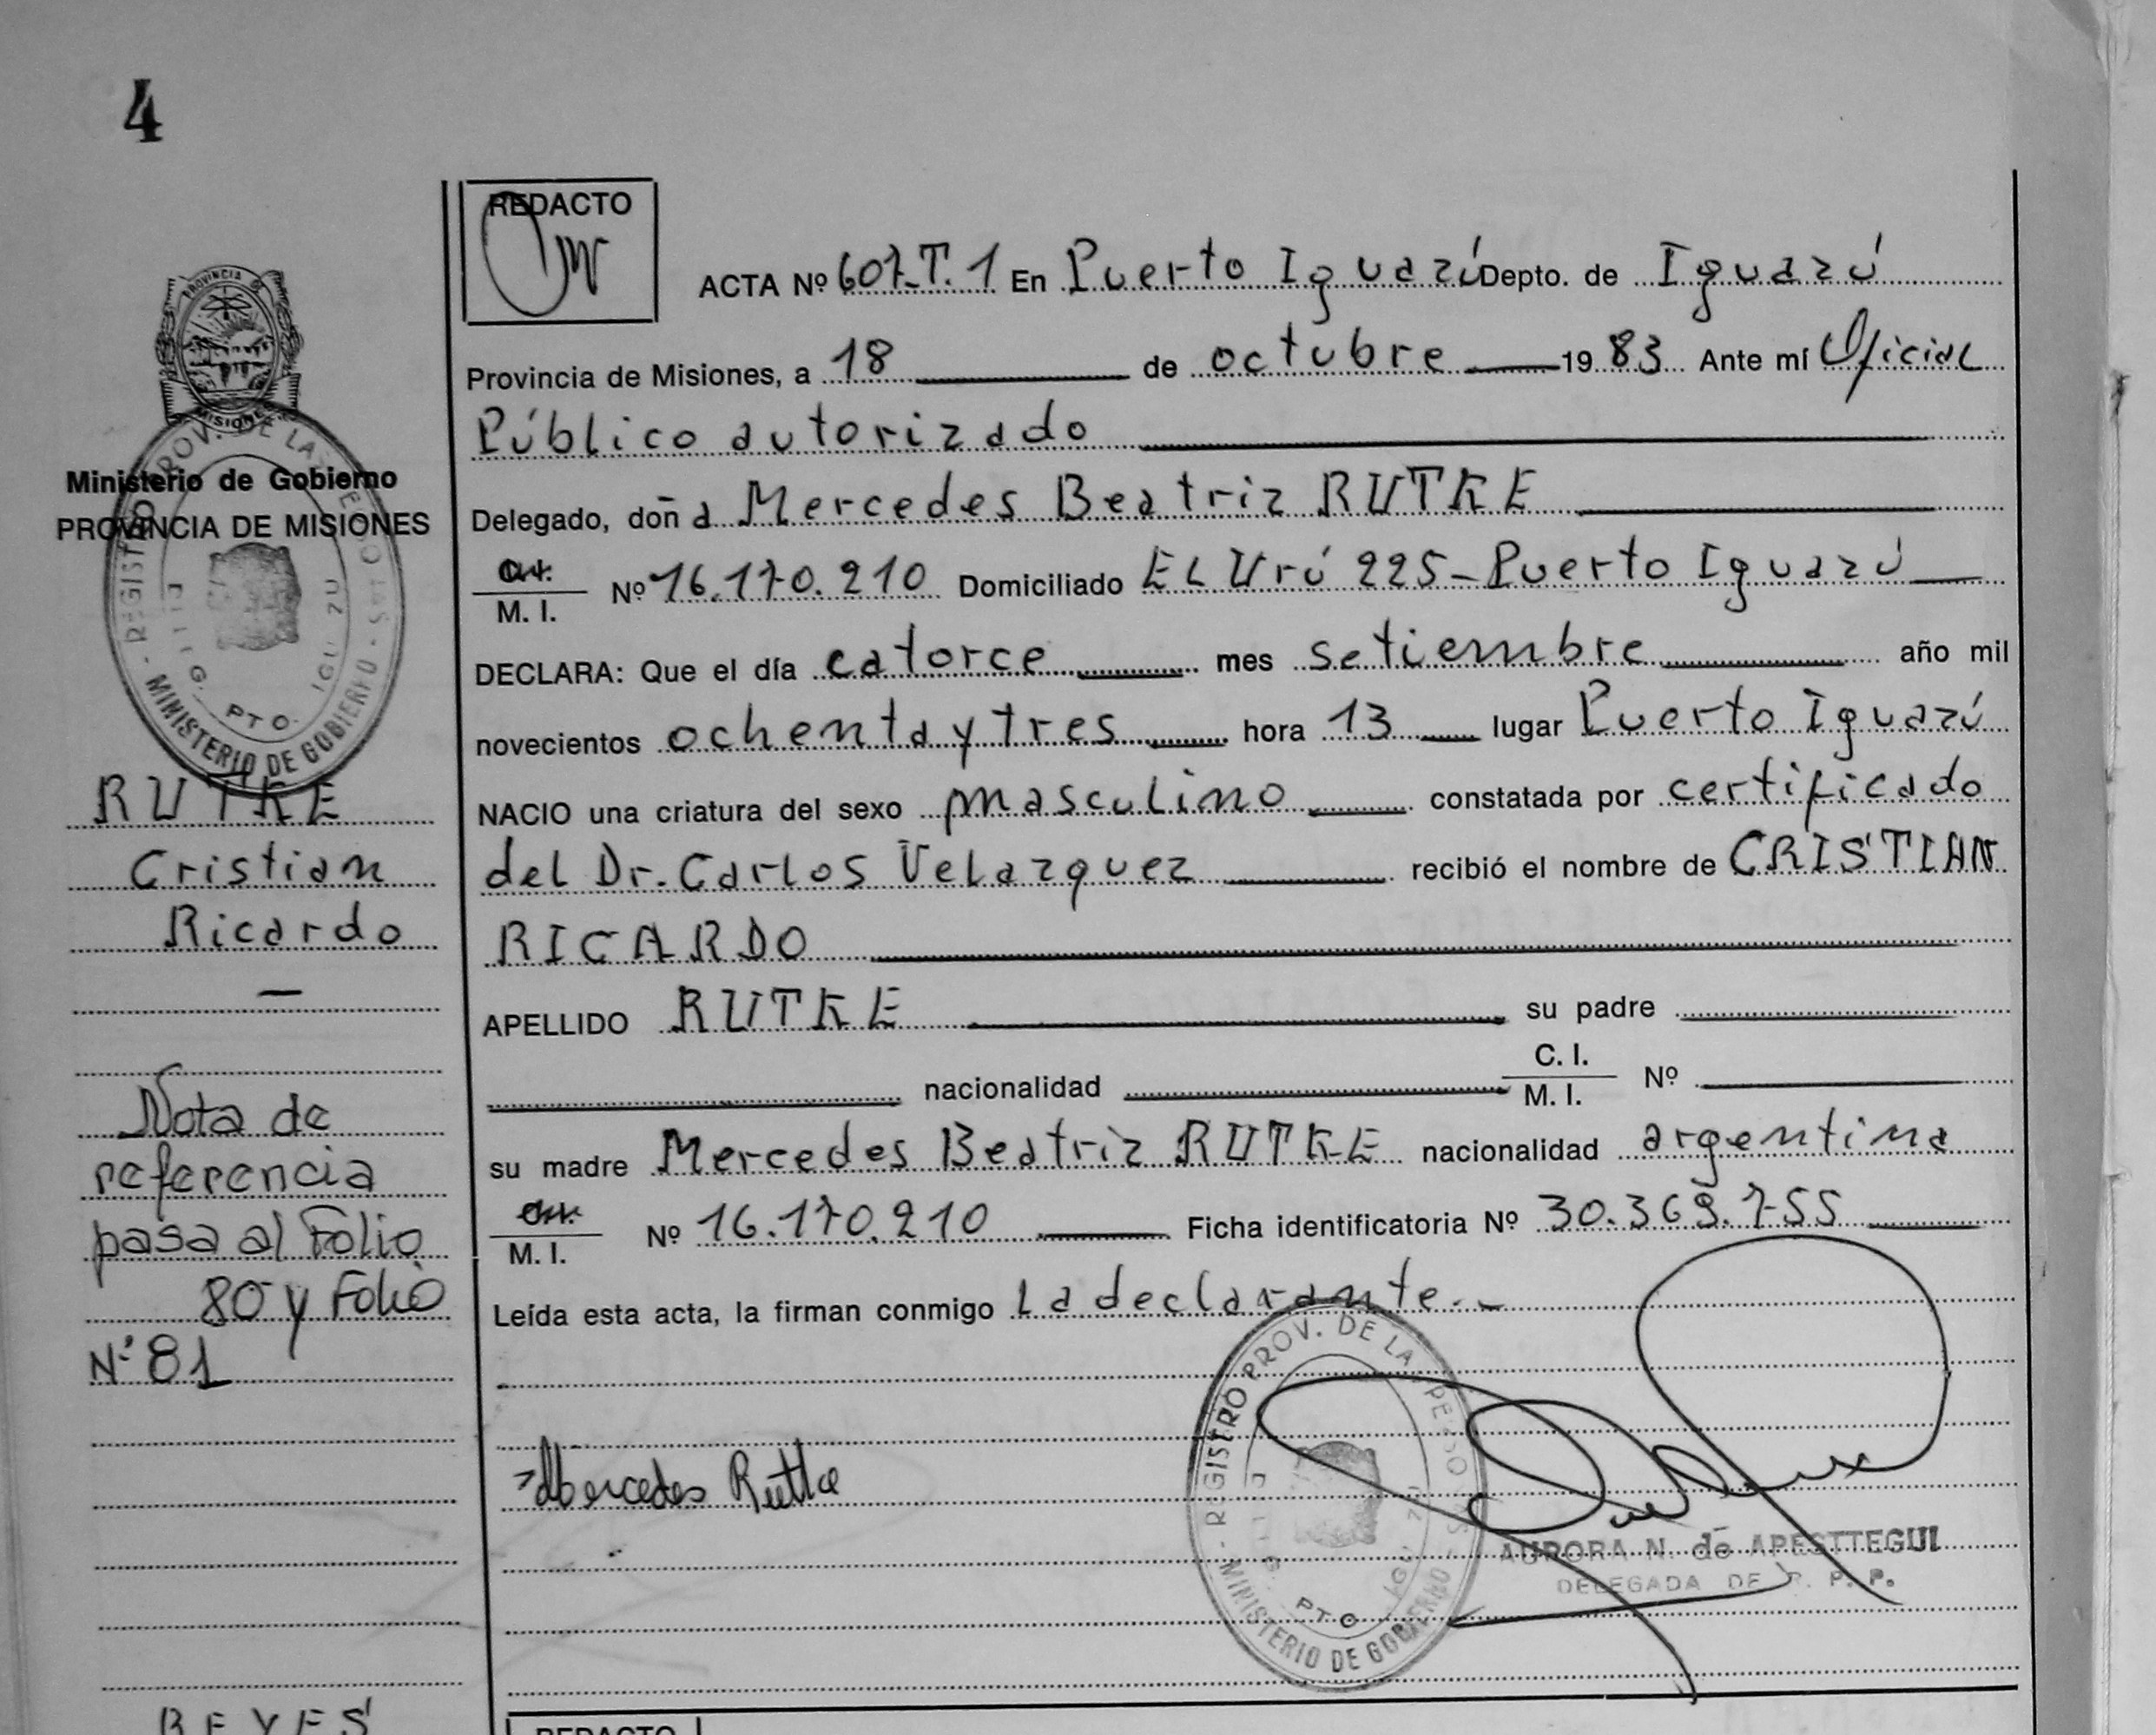 4
REDACTO
ACTA Nº 607-T.1 En Puerto Iguazú Depto. de Iguazú
Provincia de Misiones, a 18 de octubre 1983 Ante mí Oficial
Público autorizado
Delegado, doña Mercedes Beatriz RUTKE
C.I.
M. I. Nº 16.170.210 Domiciliado EL Urú 225-Puerto Iguazú
DECLARA: Que el día catorce mes setiembre año mil
novecientos ochenta y tres hora 13 lugar Puerto Iguazú
NACIO una criatura del sexo masculino constatada por certificado
del Dr. Carlos Velazquez recibió el nombre de CRISTIAN
RICARDO
APELLIDO RUTKE su padre
nacionalidad C. I.
M. I. Nº
su madre Mercedes Beatriz RUTKE nacionalidad argentina
C.I.
M. I. Nº 16.170.210 Ficha identificatoria Nº 30.369.755
Leída esta acta, la firman conmigo La declarante.-
Mercedes Rutke
AURORA N. de APESTTEGUI
DELEGADA DE R. P. P.
REGISTRO PROV. DE LAS PERSONAS
MINISTERIO DE GOBIERNO
PTO.
PROVINCIA DE
MISIONES
Ministerio de Gobierno
PROVINCIA DE MISIONES
REGISTRO PROV. DE LAS PERSONAS
MINISTERIO DE GOBIERNO
PTO.
RUTKE
Cristian
Ricardo
Nota de
referencia
pasa al Folio
80 y Folio
Nº 81
REYES
REDACTO